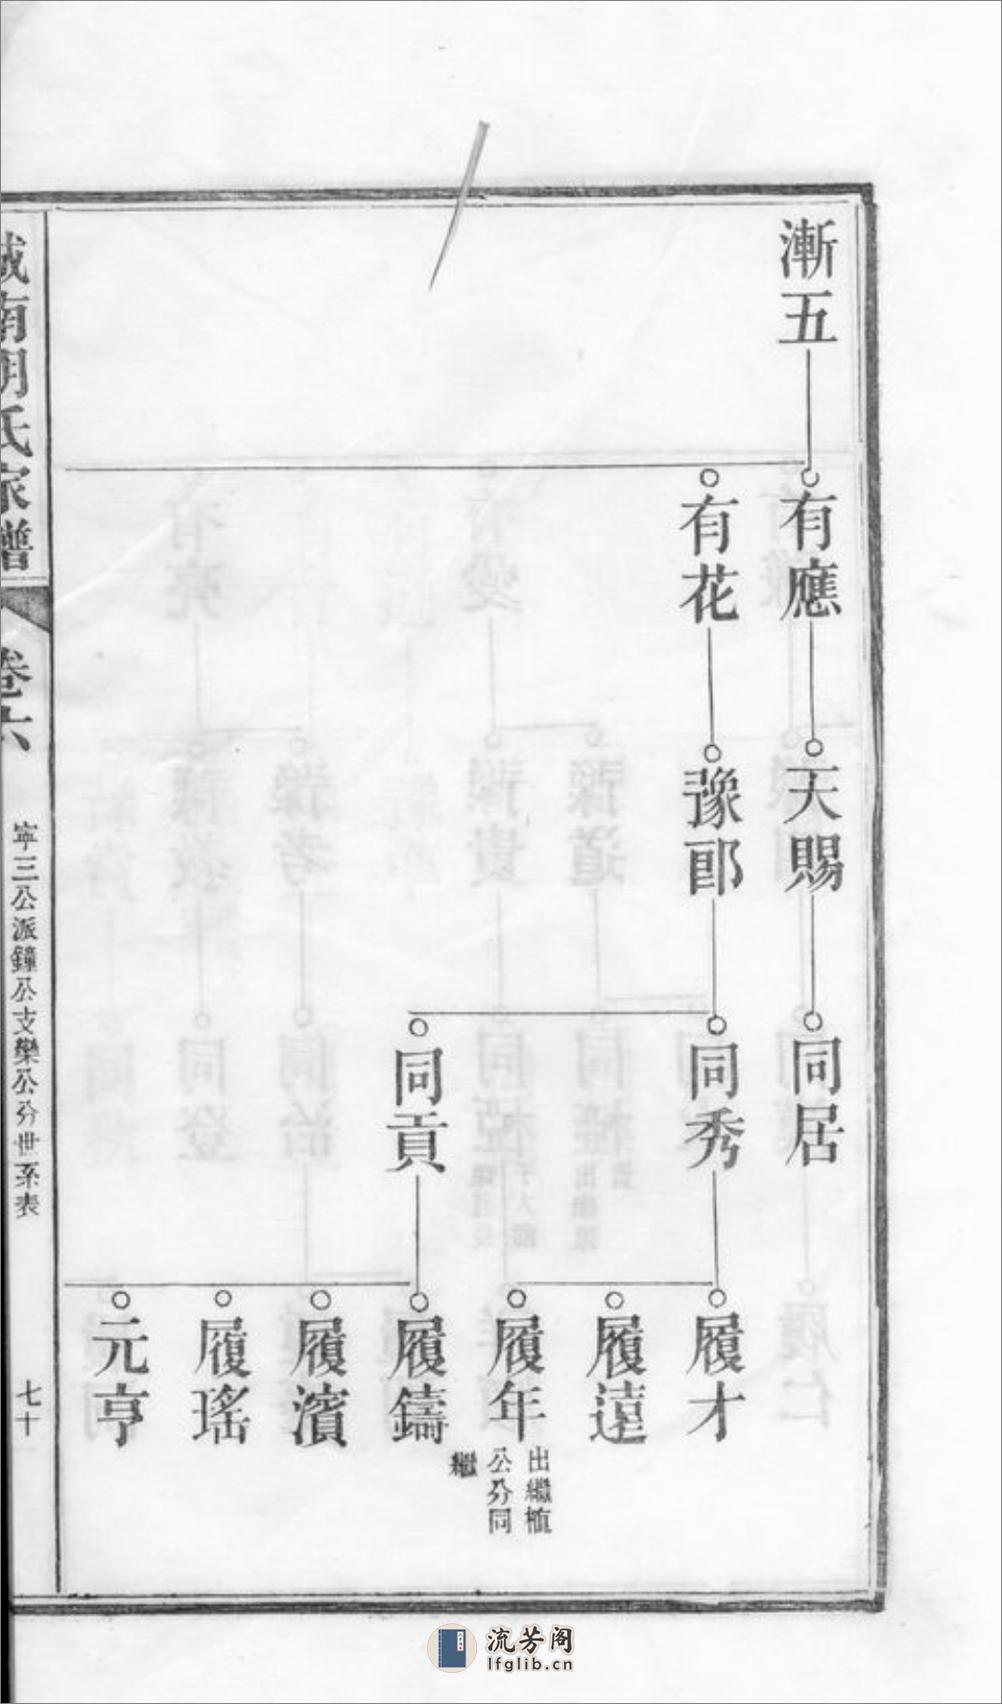 漸五
有應
有花
天賜
豫郎
同居
同秀
同貢
履才
履遠
履年
出繼植
公分同
繼
履鑄
履濱
履瑤
元亨
城南胡氏家譜
卷六
寧三公派鐘公支欒公分世系表
七十
流芳阁
lfglib.cn